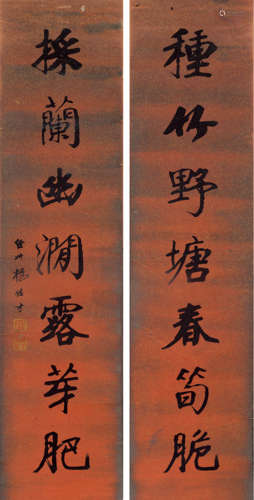 種竹野塘春筍脆
採蘭幽澗露芽肥